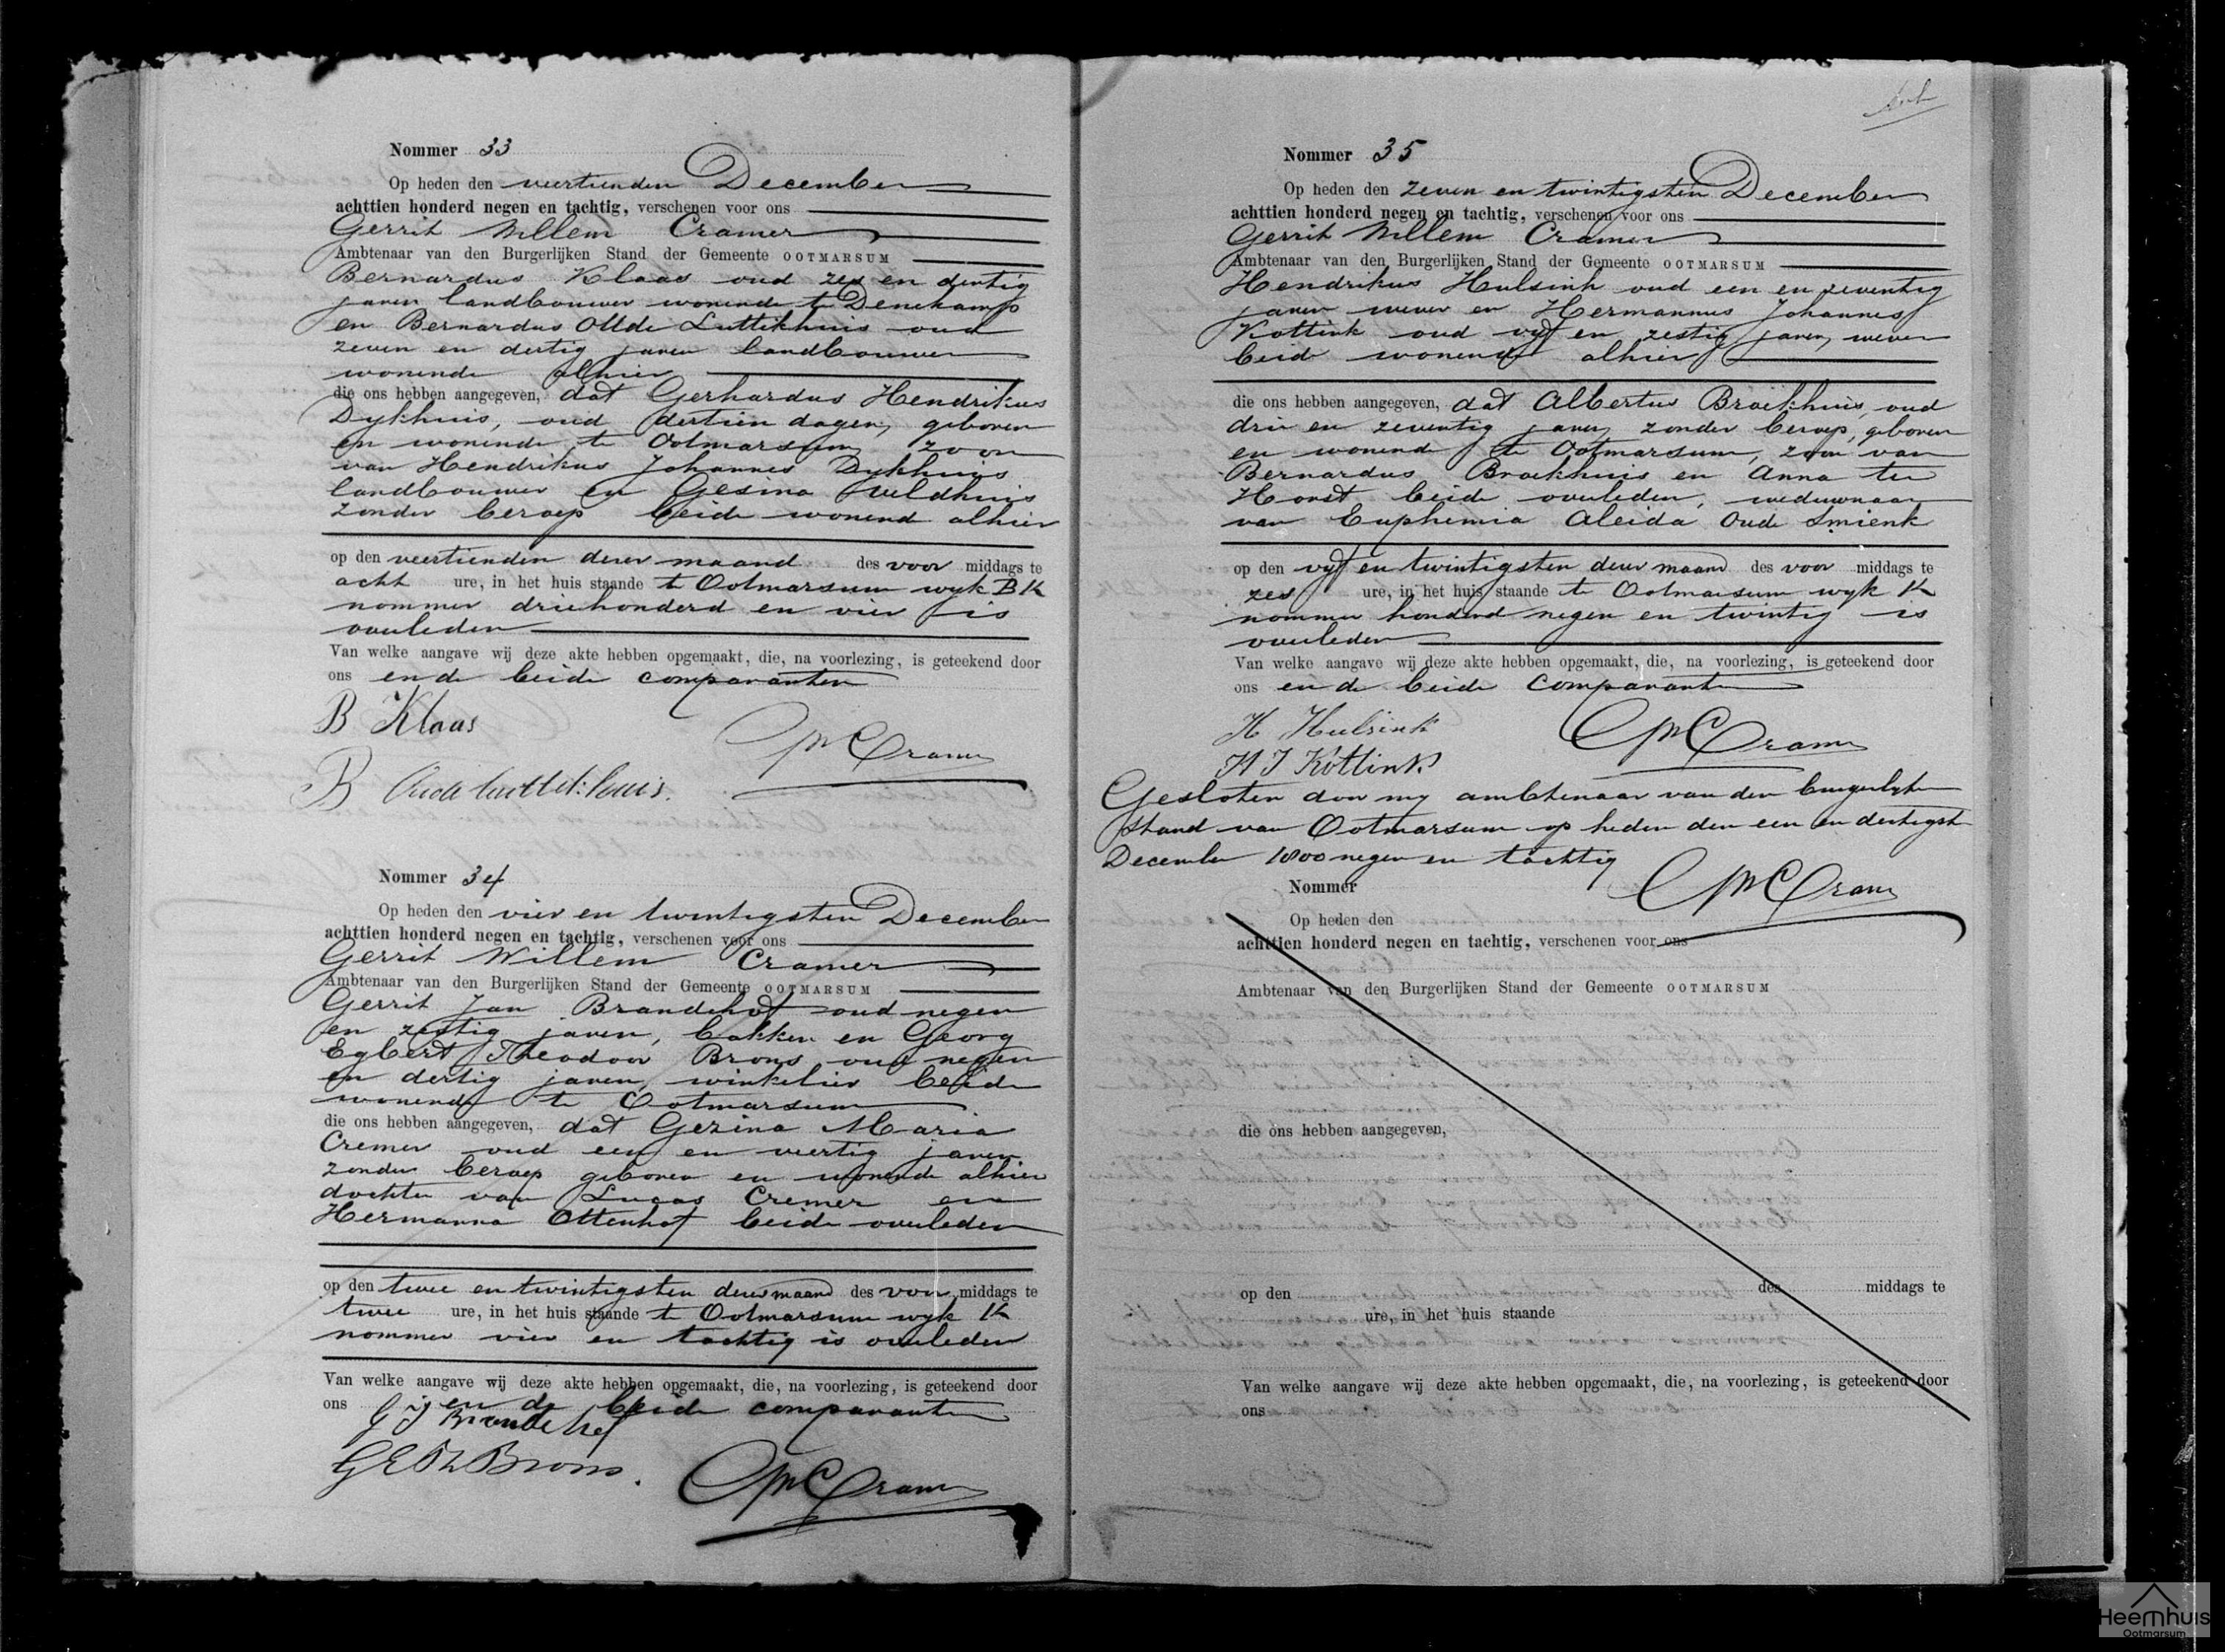 Nommer 33
Op heden den veertienden December
achttien honderd negen en tachtig, verschenen voor ons
Gerrit Willem Cramer
Ambtenaar van den Burgerlijken Stand der Gemeente OOTMARSUM
Bernardus Klaas oud zes en dertig
jaren landbouwer wonende te Denekamp
en Bernardus Olde Luttikhuis oud
zeven en dertig jaren landbouwer
wonende alhier
die ons hebben aangegeven, dat Gerhardus Hendrikus
Dykhuis, oud dertien dagen, geboren
en wonende te Ootmarsum, zoon
van Hendrikus Johannes Dykhuis
landbouwer en Gesina Veldhuis
zonder beroep beide wonend alhier
op den veertienden dezer maand des voor middags te
acht ure, in het huis staande te Ootmarsum wyk BK
nommer driehonderd en vier is
overleden
Van welke aangave wij deze akte hebben opgemaakt, die, na voorlezing, is geteekend door
ons en de beide comparanten
B Klaas
GW Cramer
B Oude luttikhuis.
Nommer 34
Op heden den vier en twintigsten December
achttien honderd negen en tachtig, verschenen voor ons
Gerrit Willem Cramer
Ambtenaar van den Burgerlijken Stand der Gemeente OOTMARSUM
Gerrit Jan Brandehof oud negen
en zestig jaren, bakker en Georg
Egbert Theodoor Brons oud negen
en dertig jaren, winkelier beide
wonende te Ootmarsum
die ons hebben aangegeven, dat Gezina Maria
Cremer oud een en veertig jaren
zonder beroep geboren en wonende alhier
dochter van Lucas Cremer en
Hermanna Ottenhof beide overleden
op den twee en twintigsten dezer maand des voor middags te
twee ure, in het huis staande te Ootmarsum wyk K
nommer vier en tachtig is overleden
Van welke aangave wij deze akte hebben opgemaakt, die, na voorlezing, is geteekend door
ons en de beide comparanten
G J Brandehof
G E Th Brons.
GW Cramer
Nommer 35
Op heden den zeven en twintigsten December
achttien honderd negen en tachtig, verschenen voor ons
Gerrit Willem Cramer
Ambtenaar van den Burgerlijken Stand der Gemeente OOTMARSUM
Hendrikus Hulsink oud een en zeventig
jaren wever en Hermannus Johannes
Kottink oud vyf en zestig jaren, wever
beide wonende alhier
die ons hebben aangegeven, dat Albertus Broekhuis, oud
drie en zeventig jaren, zonder beroep, geboren
en wonende te Ootmarsum, zoon van
Bernardus Broekhuis en Anna ter
Horst beide overleden, weduwnaar
van Euphemia Aleida Oude Smienk
op den vyf en twintigsten dezer maand des voor middags te
zes ure, in het huis staande te Ootmarsum wyk K
nommer honderd negen en twintig is
overleden
Van welke aangave wij deze akte hebben opgemaakt, die, na voorlezing, is geteekend door
ons en de beide comparanten
H Hulsink
GW Cramer
H J Kottink
Gesloten door my ambtenaar van den burgerlyken
stand van Ootmarsum op heden den een en dertigste
December 1800 negen en tachtig
GW Cramer
Nommer
Op heden den
achttien honderd negen en tachtig, verschenen voor ons
Ambtenaar van den Burgerlijken Stand der Gemeente OOTMARSUM
die ons hebben aangegeven,
op den des middags te
ure, in het huis staande
Van welke aangave wij deze akte hebben opgemaakt, die, na voorlezing, is geteekend door
ons
Heemhuis
Ootmarsum